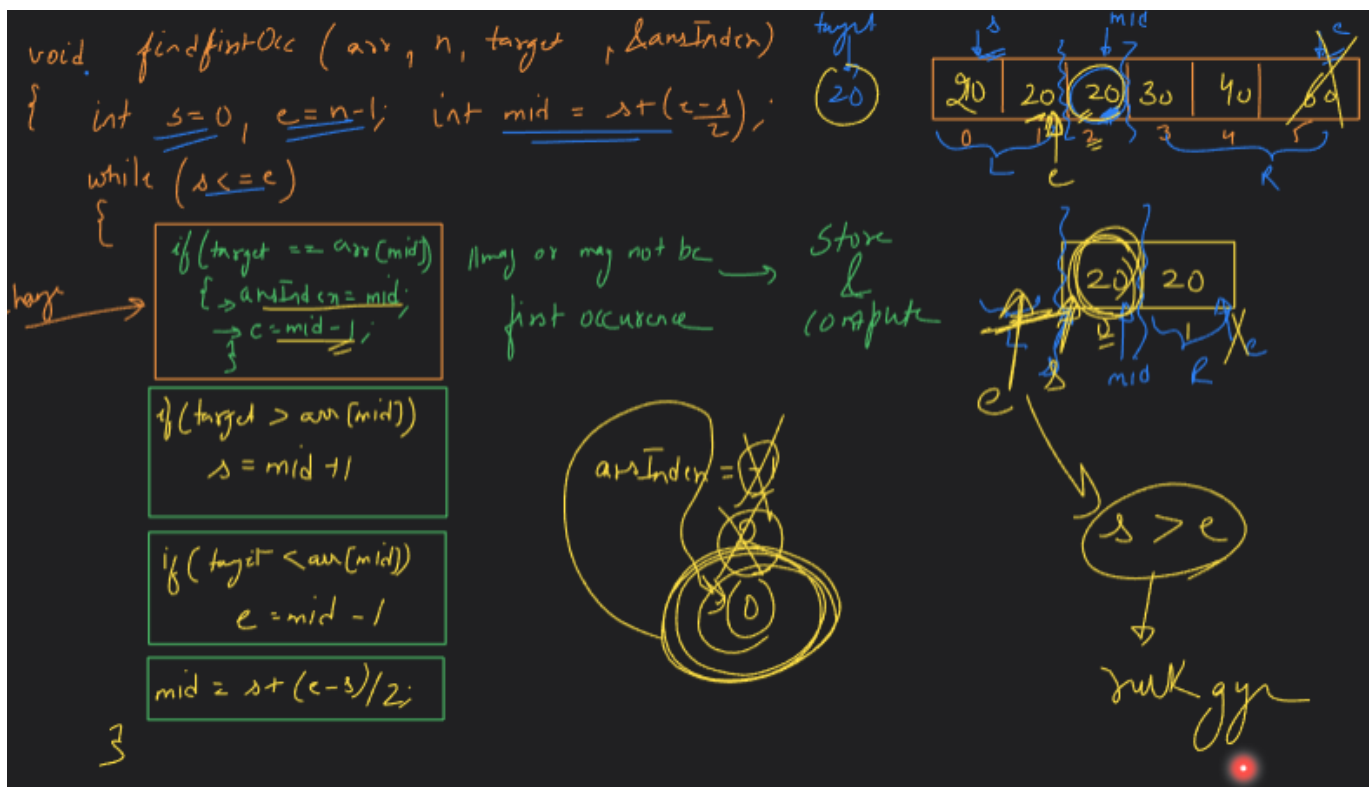 void findfirstOcc (arr, n, target, &ansIndex)
{ int s=0, e=n-1; int mid = s+(e-s/2);
while (s<=e)
{
if (target == arr[mid])
{ → ansIndex=mid;
→ e=mid-1;
}
//may or may not be
first occurence
→ Store
&
compute
if (target > arr[mid])
s = mid +1
if (target < arr[mid])
e =mid - 1
mid = s+(e-s)/2;
}
ansIndex = -1
0
target
20
s
mid
e
20 20 30 40
0 1 2 3 4 5
L
e
R
20 20
1
e
s
mid
R
e
s > e
ruk gya